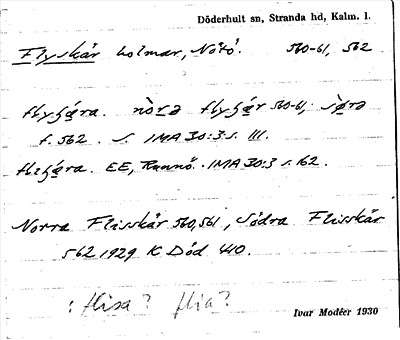 Döderhult sn, Stranda hd, Kalm. l.
Flyskär holmar, Nötö. 560-61, 562
flyʃæra. nòrə flyʃær 560-61; sø̀rə
f. 562. S. IMA 30:3 s. 111.
fliʃæra. EE, Runnö. IMA 30:3 s. 162.
Norra Flisskär 560,561, Södra Flisskär
562 1929 K Död 410.
: flisa? flia?
Ivar Modéer 1930